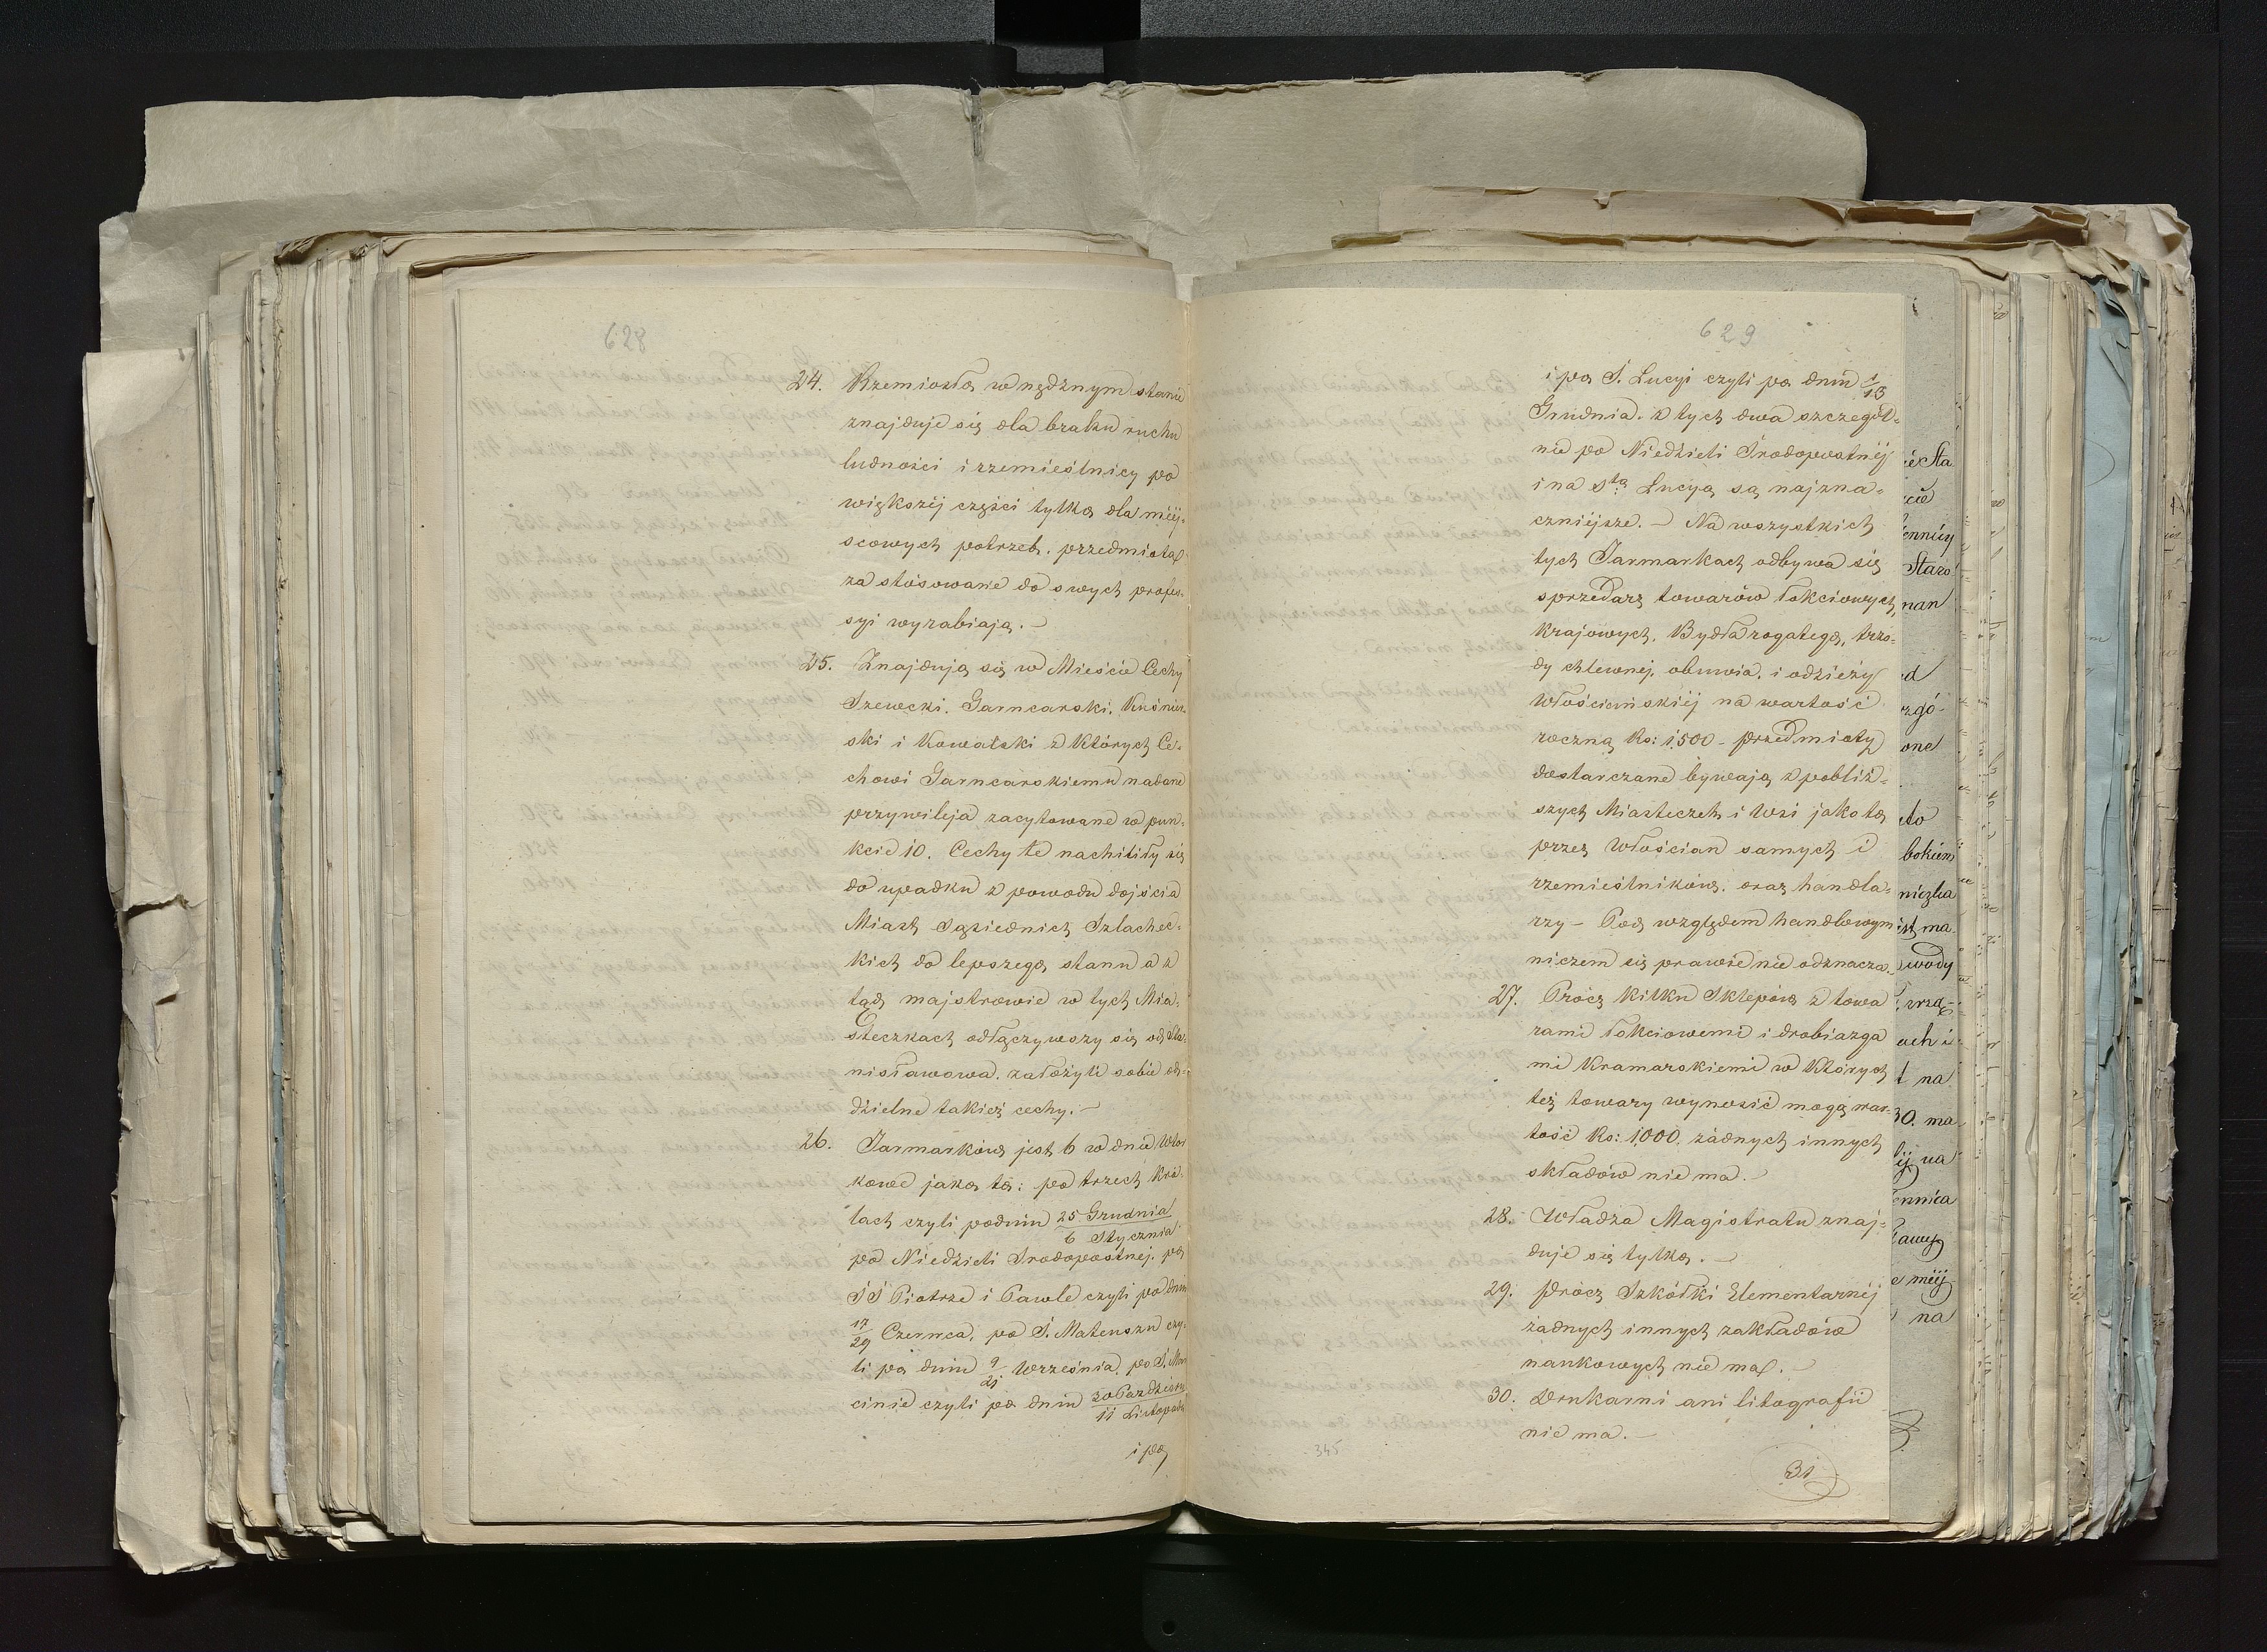 628
24. Rzemiosła w nędznym stanie
znajduje się dla braku ruchu
ludności i rzemieślnicy po
większej części tylko dla miej-
scowych potrzeb, przedmiota
zastosowane do swych profes-
syi wyrabiają. –
25. Znajdują się w Mieście Cechy
Szewcki, Garncarski, Kuśnier-
ski i Kowalski z których Ce-
chowi Garncarskiemu nadane
przywileja zacytowane w pun-
kcie 10. Cechy te nachiliły się
do upadku z powodu dojścia
Miast Sąsiednich Szlachec-
kich do lepszego stanu a z
tąd majstrowie w tych Mia-
steczkach odłączywszy się od Sta-
nisławowa, założyli sobie od-
dzielne takież cechy. –
26. Jarmarków jest 6 w dnie Wtor
kowe jako to: po trzech Kró-
lach czyli po dniu 25 Grudnia
6 Stycznia
po Niedzieli Srodopostnej, po
SS Piotrze i Pawle czyli po dniu
17/29 Czerwca, po S. Mateuszu czy-
li po dniu 9/21 Września, po S. Mar
cinie czyli po dniu 30 Październ
11 Listopada
i po
629
i po S. Lucyi czyli po dniu 1/13
Grudnia. z tych dwa szczegól-
nie po Niedzieli Srodopostnéj
i na Stą Lucyą są najzna-
czniejsze. – Na wszystkich
tych Jarmarkach odbywa się
sprzedarz towarów łokciowych
krajowych, Bydła rogatego, trzo-
dy chlewnej, obuwia, i odzieży
Włościańskiéj na wartość
roczną Rs: 1,500 – przedmioty
dostarczane bywają z pobliż-
szych Miasteczek i Wsi jako to
przez Włościan samych i
rzemieślników, oraz handla-
rzy – Pod względem handlowym
niczem się prawie nie odznacza.
27. Prócz kilku Sklepów z towa
rami łokciowemi i drobiazga
mi kramarskiemi w których
też towary wynosić mogą war-
tość Rs: 1,000, żadnych innych
składów nie ma. –
28. Władza Magistratu znaj-
duje się tylko. –
29. Prócz Szkółki Elementarnéj
żadnych innych zakładów
naukowych nie ma. –
30. Drukarni ani litografii
nie ma. –
345
31